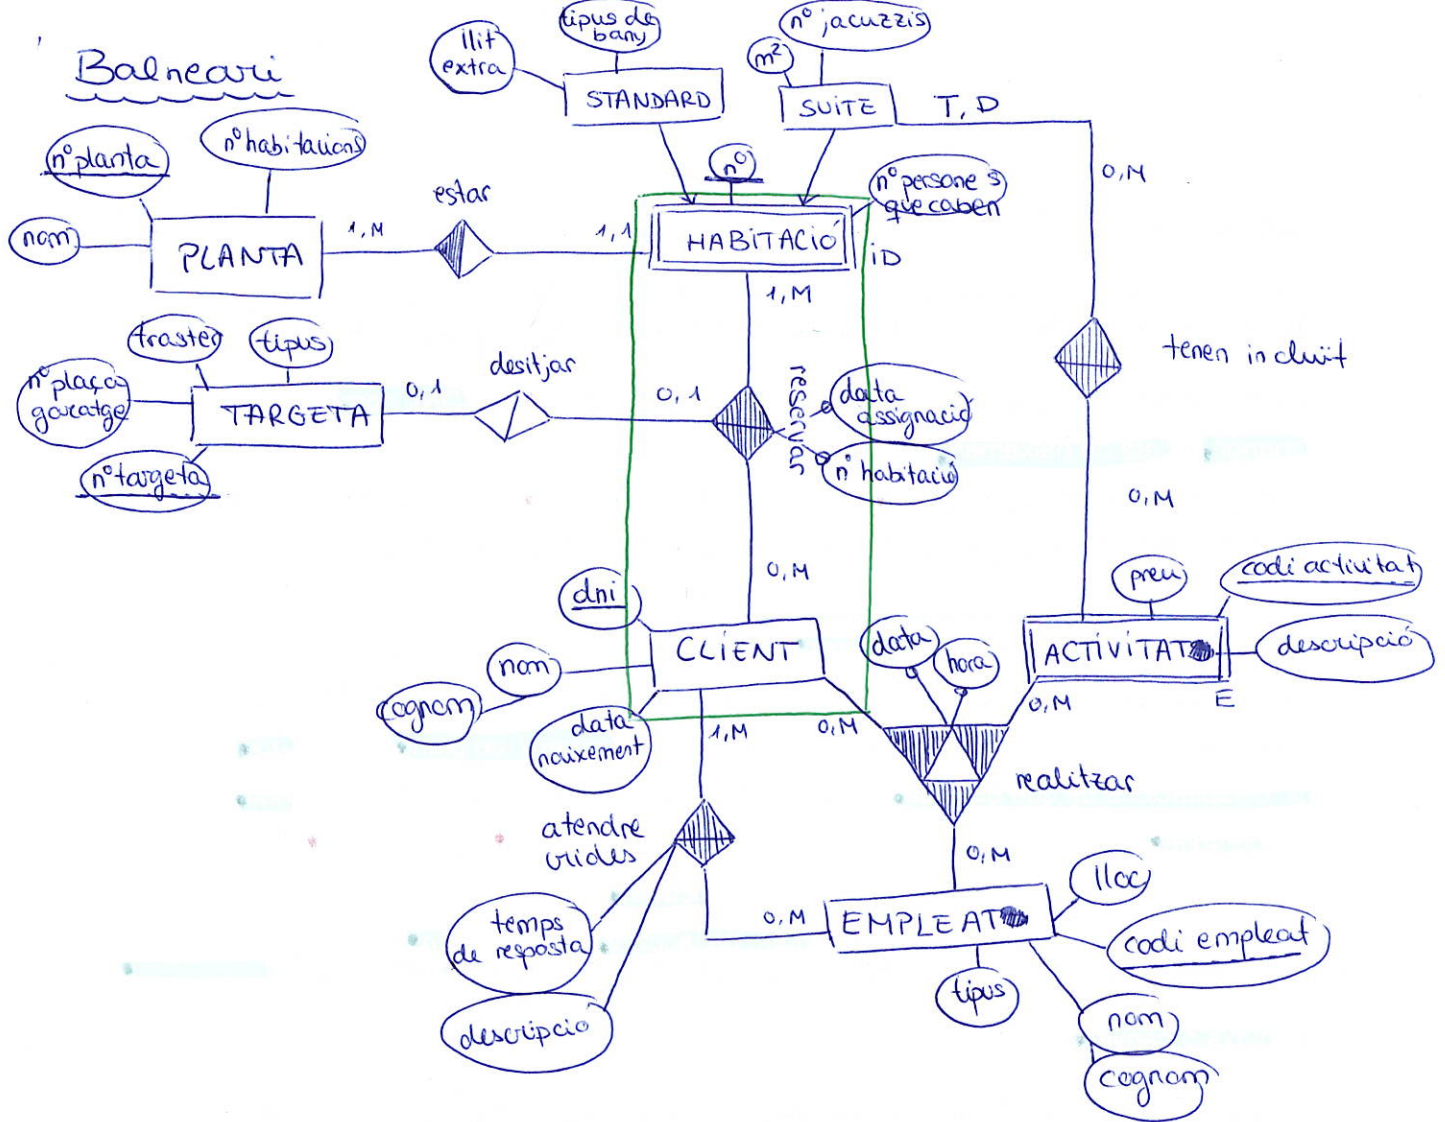 Balneari
llit
extra
tipus de
bany
nº jacuzzis
m²
STANDARD
SUITE
T, D
nº planta
nº habitacions
nº
nº persones
que caben
0,M
nom
PLANTA
1,M
estar
1,1
HABITACIÓ
iD
1,M
traster
tipus
nº plaça
garatge
TARGETA
0,1
desitjar
0,1
reservar
data
assignació
nº habitació
tenen incluït
nº targeta
0,M
0,M
dni
CLIENT
nom
cognom
data
naixement
data
hora
preu
codi activitat
ACTIVITAT
descripció
E
1,M
0,M
0,M
realitzar
atendre
crides
0,M
temps
de resposta
descripció
0,M
EMPLEAT
lloc
codi empleat
tipus
nom
cognom